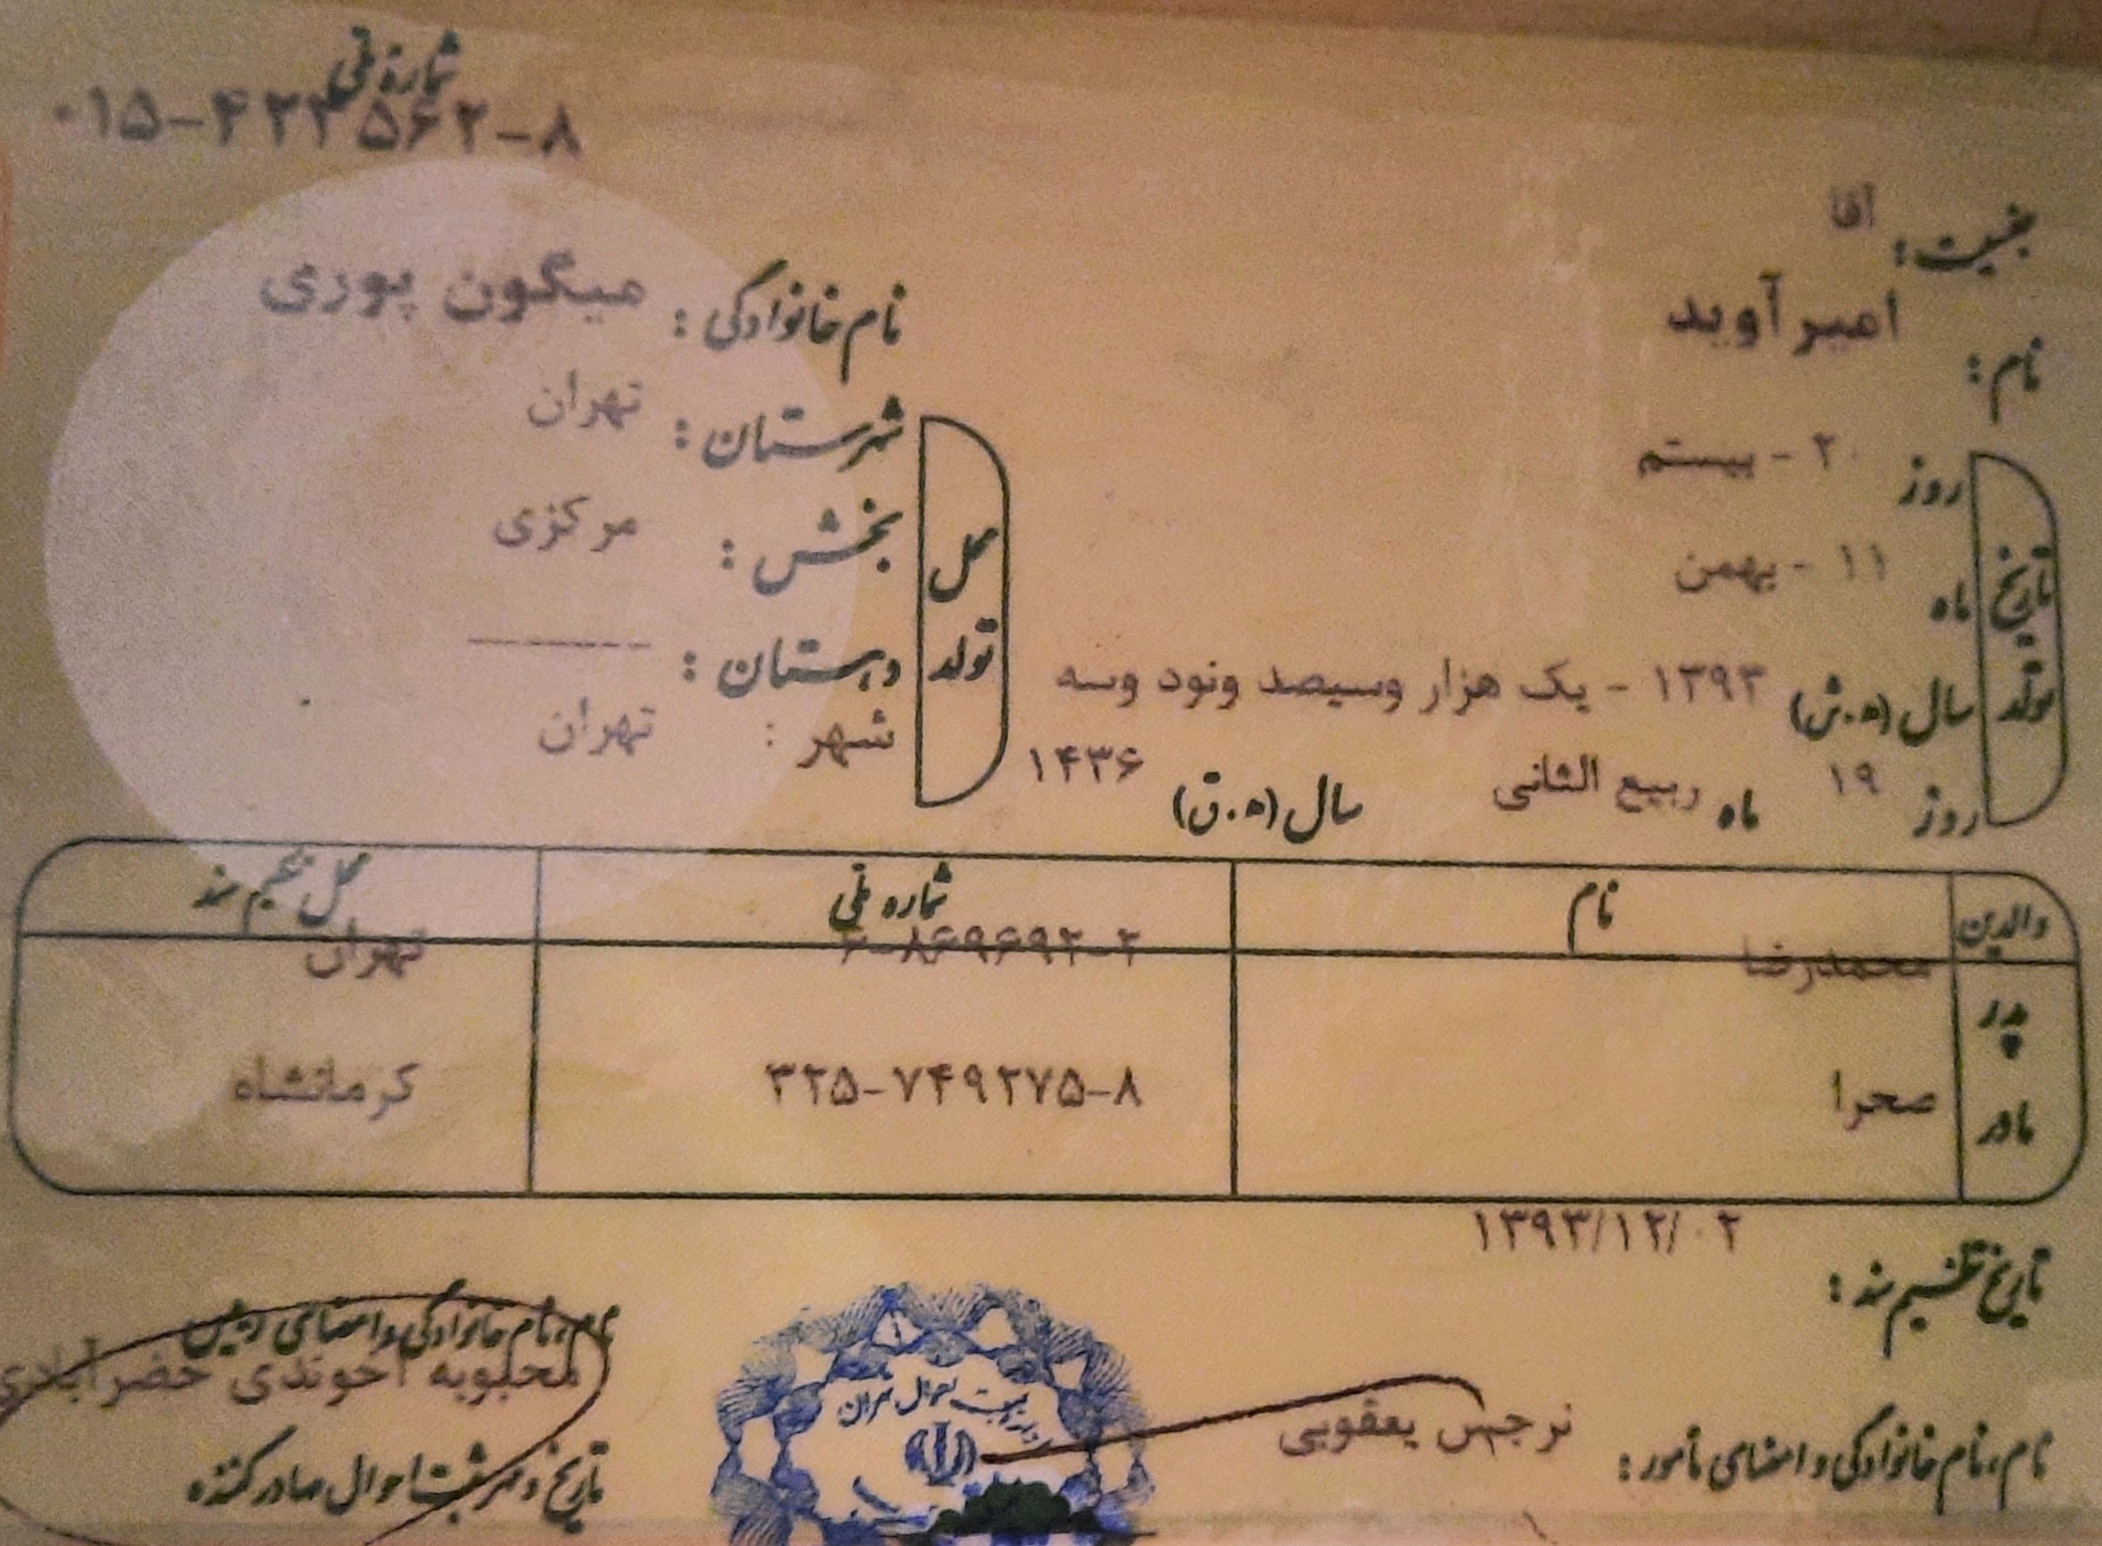 شماره ملی
۰۱۵-۴۲۲۵۶۲-۸
جنسیت: آقا
نام: امیرآوید
نام خانوادگی: میگون پوری
تاریخ تولد
روز ۲۰ - بیستم
ماه ۱۱ - بهمن
سال (ه.ش) ۱۳۹۳ - یک هزار وسیصد ونود وسه
روز ۱۹ ماه ربیع الثانی سال (ه.ق) ۱۴۳۶
محل تولد
شهرستان: تهران
بخش: مرکزی
دهستان: ----------
شهر: تهران
والدین نام شماره ملی محل تنظیم سند
پدر محمدرضا تهران
مادر صحرا ۳۲۵-۷۴۹۲۷۵-۸ کرمانشاه
تاریخ تنظیم سند: ۱۳۹۳/۱۲/۰۲
نام، نام خانوادگی و امضای مأمور: نرجس یعقوبی
نام، نام خانوادگی و امضای رئیس
محبوبه آخوندی خضرآبادی
تاریخ و مهر ثبت احوال صادر کننده
ثبت احوال تهران